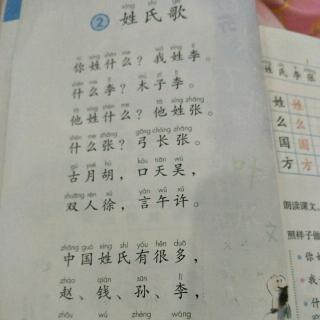 xìng shì gē
② 姓氏歌
nǐ xìng shén me wǒ xìng lǐ
你姓什么？我姓李。
shén me lǐ mù zǐ lǐ
什么李？木子李。
tā xìng shén me tā xìng zhāng
他姓什么？他姓张。
shén me zhāng gōng cháng zhāng
什么张？弓长张。
gǔ yuè hú kǒu tiān wú
古月胡，口天吴，
shuāng rén xú yán wǔ xǔ
双人徐，言午许。
zhōng guó xìng shì yǒu hěn duō
中国姓氏有很多，
zhào qián sūn lǐ
赵、钱、孙、李，
zhōu wú zhèng wáng
姓氏李张
姓姓
么么
国国
方方
朗读课文。